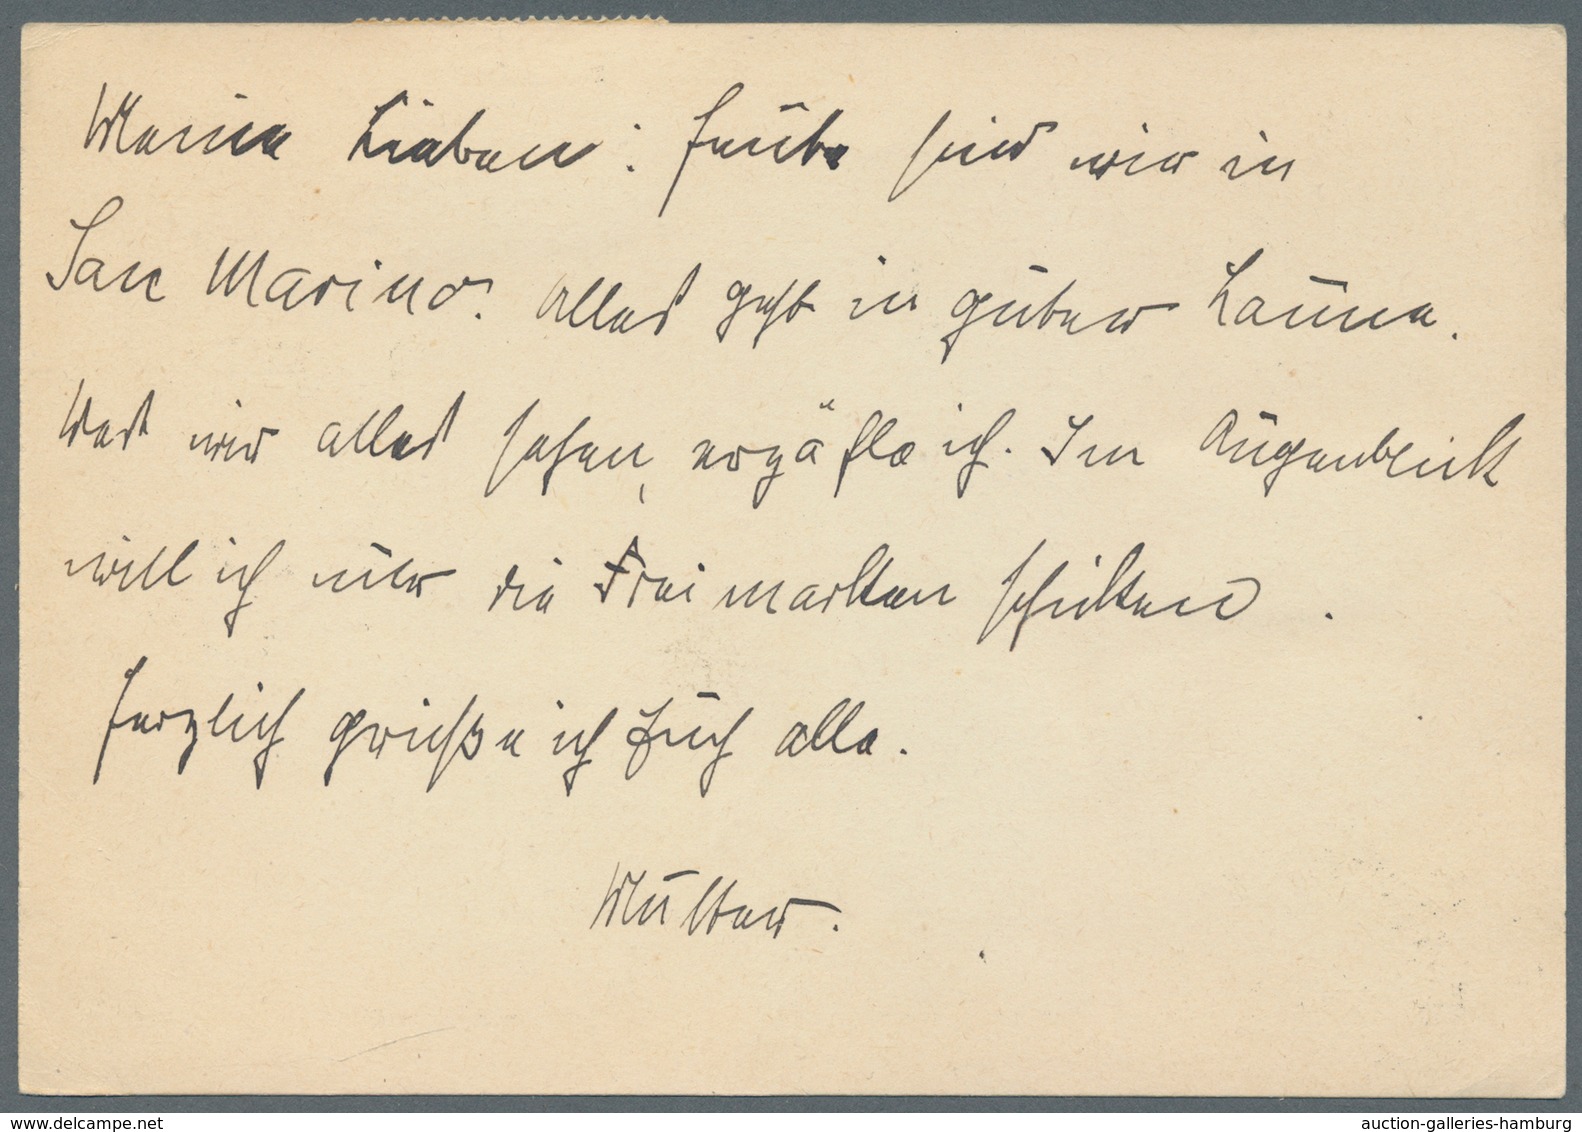 Meine Lieben: heute sind wir in
San Marino. Alles geht in guter Laune.
Was wir alles sehen, erzähle ich. Im Augenblick
will ich nur die Freimarken schicken.
Herzlich grüße ich Euch alle.
Mutter.
www.delcampe.net
auction-galleries-hamburg